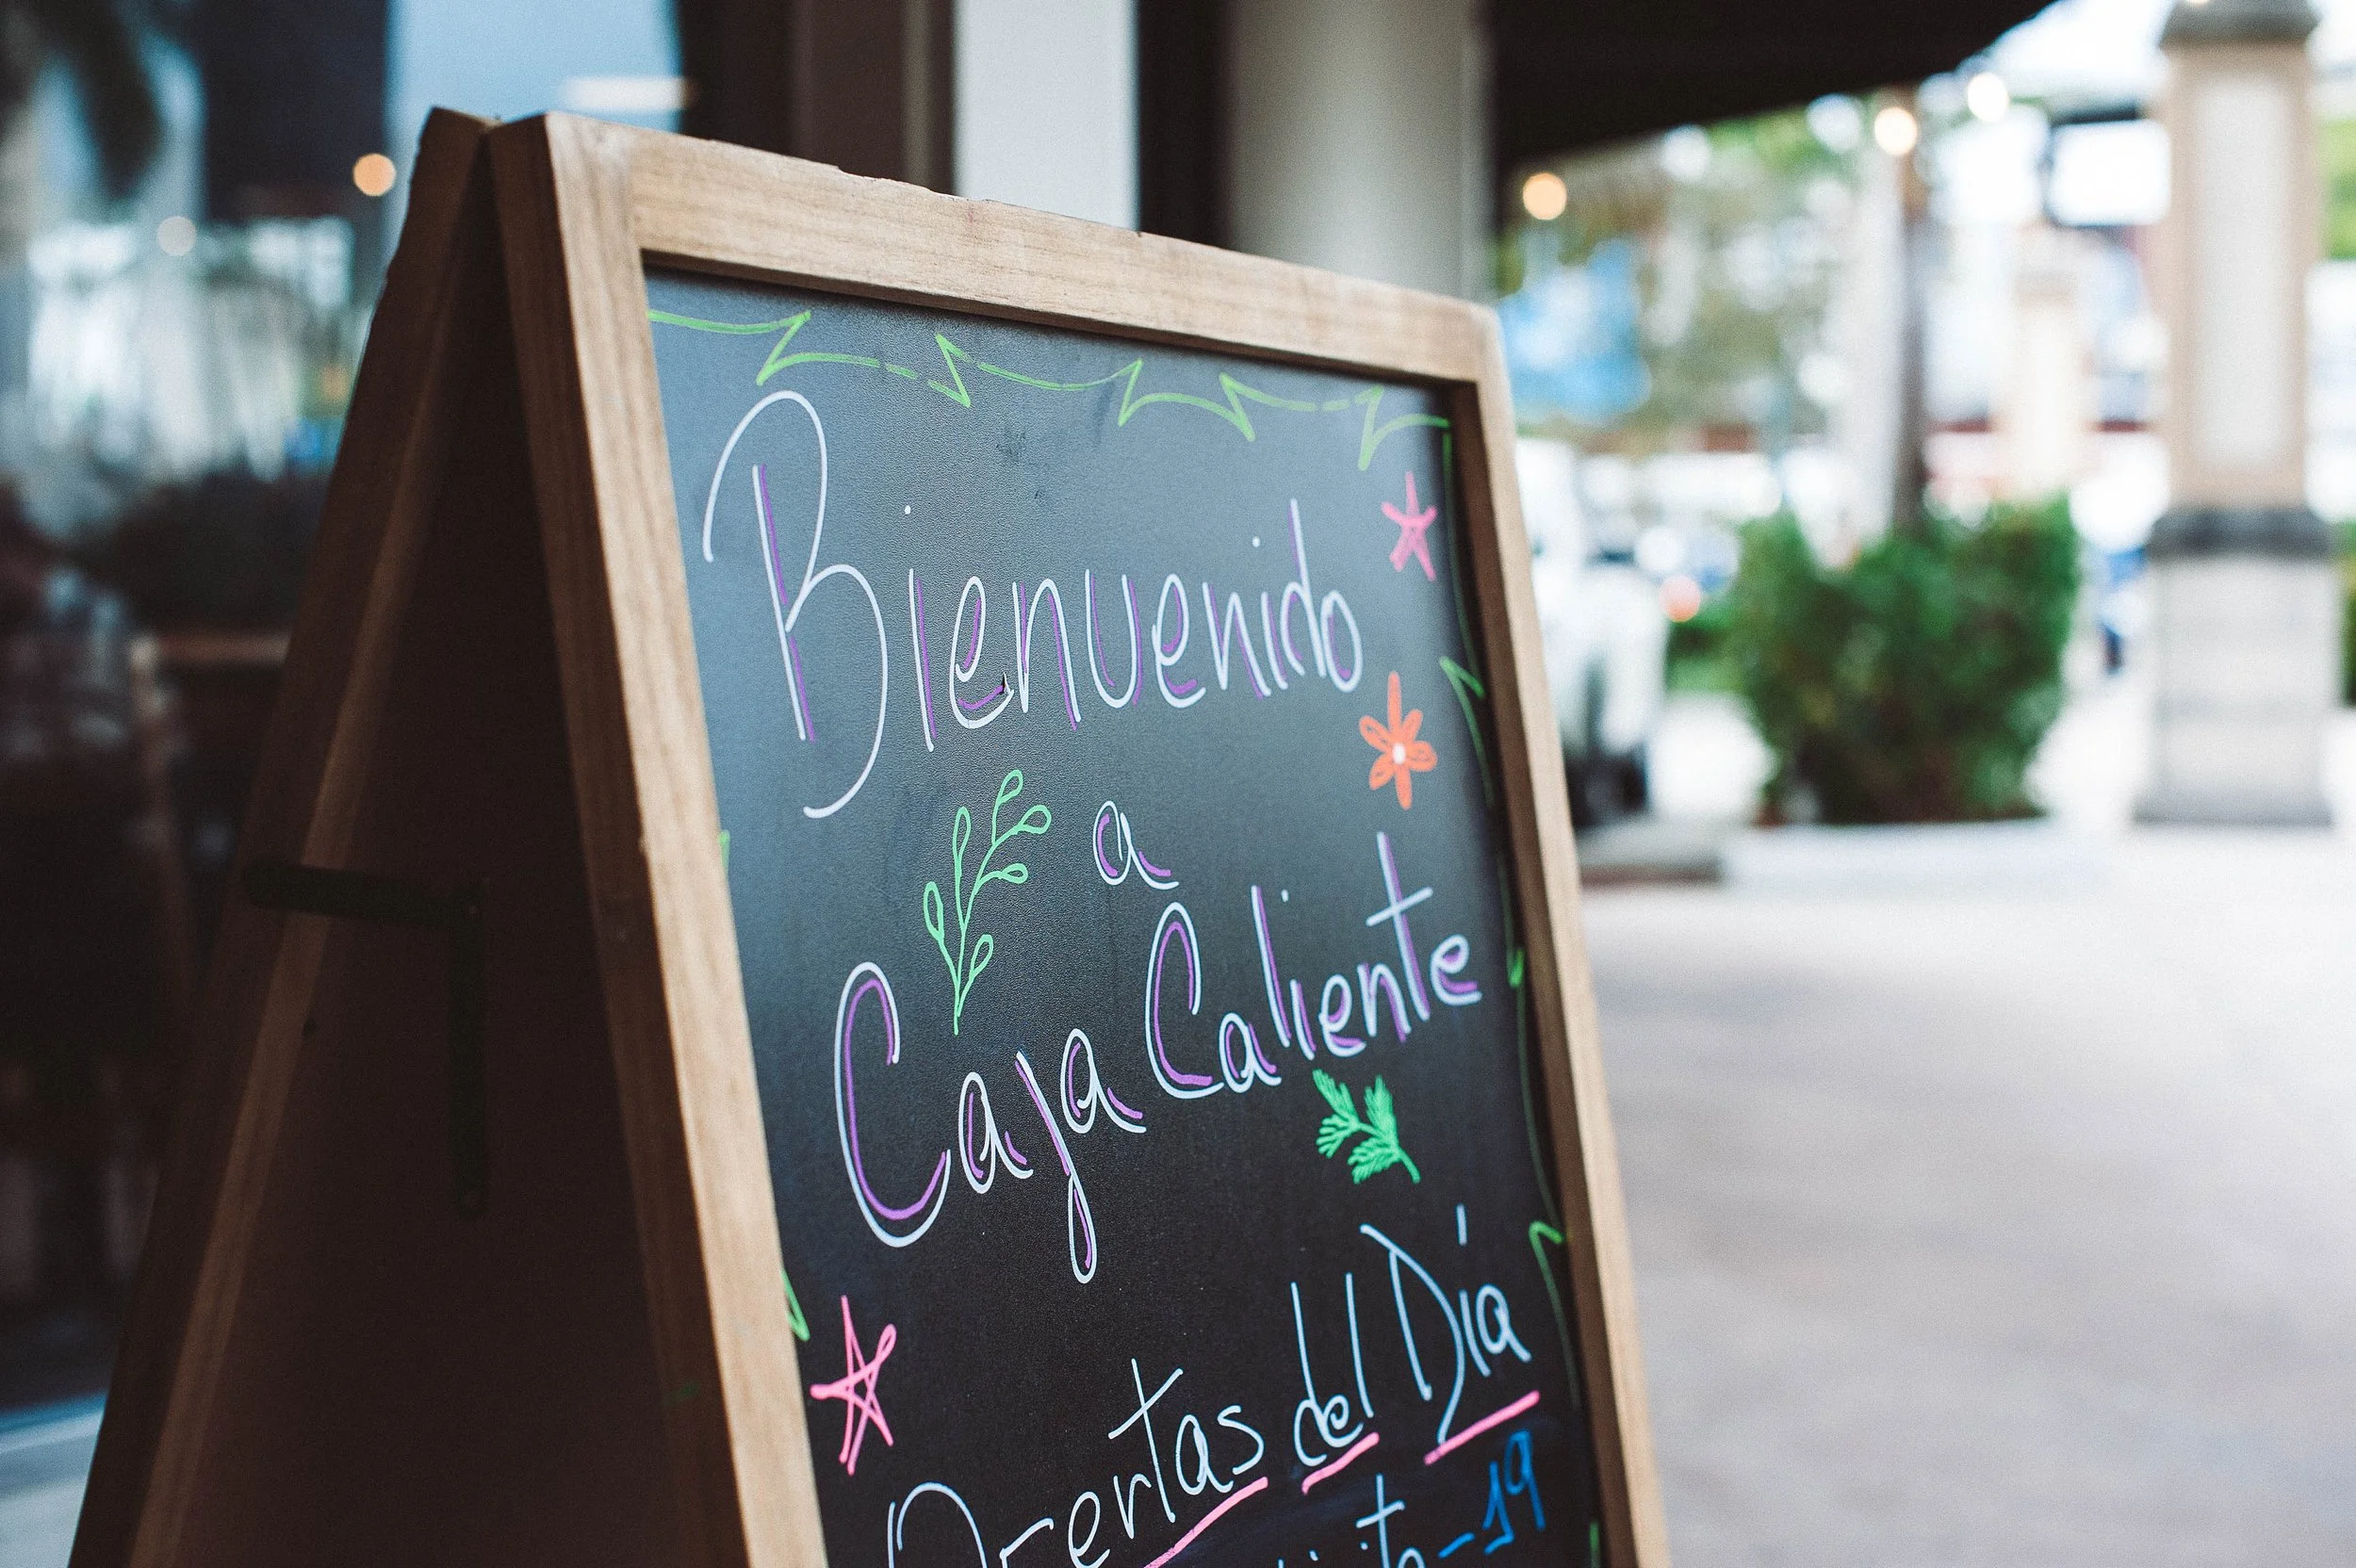 Bienvenido
a
Caja Caliente
Ofertas del Día
-19